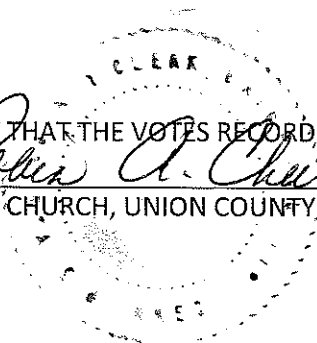 CLERK
THAT THE VOTES RECORD
Robin A. Chu
CHURCH, UNION COUNTY